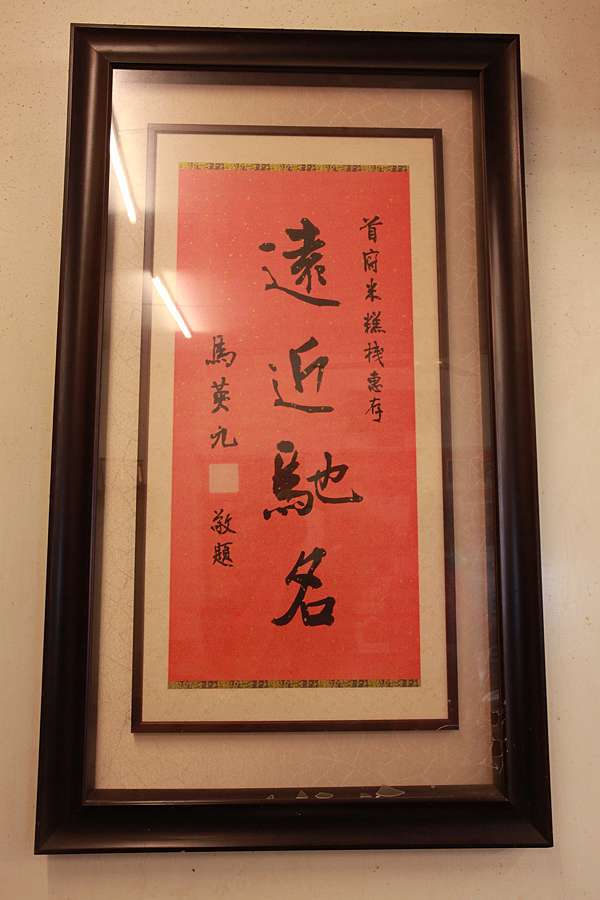 首府米糕棧惠存
遠近馳名
馬英九
敬題